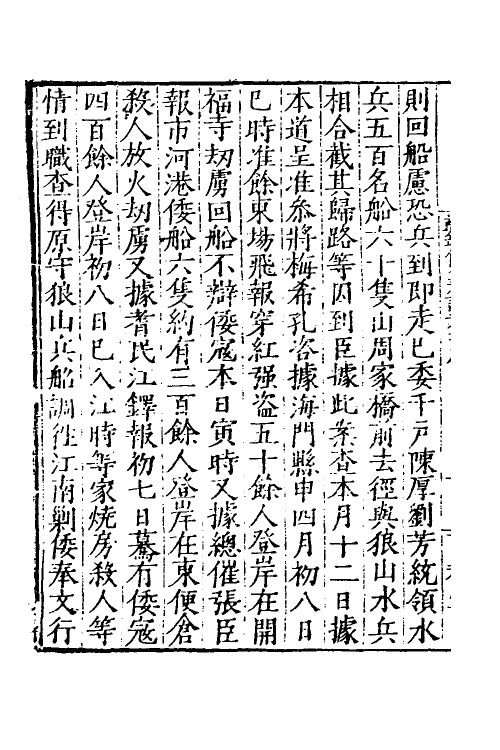 則回船慮恐兵到即走已委千戸陳厚劉芳統領水
兵五百名船六十隻山周家橋前去徑與狼山水兵
相合截其歸路等因到臣據此案查本月十二日據
本道呈准叅將梅希孔咨據海門縣申四月初八日
巳時准餘東塲飛報穿紅强盗五十餘人登岸在開
福寺刼虜回船不辯倭寇本日寅時又據總催張臣
報市河港倭船六隻約有三百餘人登岸在東便倉
殺人放火刼虜又據耆民江鐸報初七日驀有倭寇
四百餘人登岸初八日巳入江時等家燒房殺人等
情到職查得原守狼山兵船調徃江南剿倭奉文行